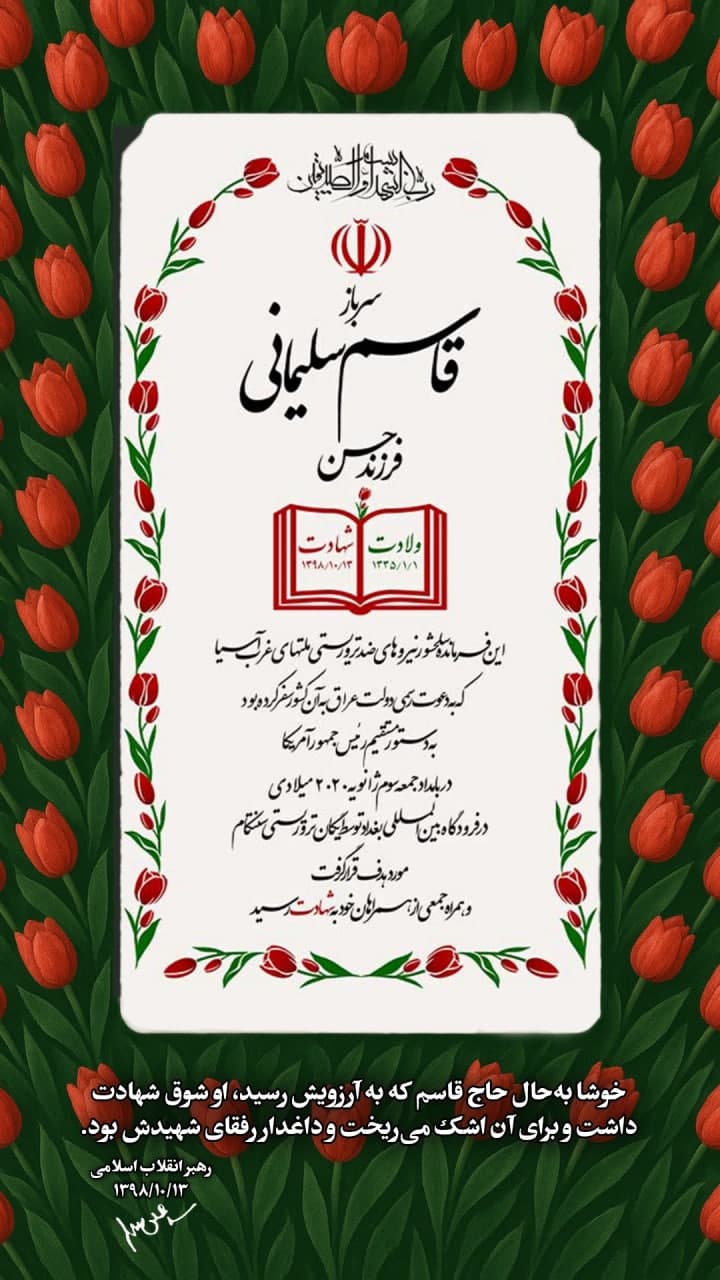 رب الشهداء و الصدیقین
سرباز
قاسم سلیمانی
فرزند حسن
ولادت شهادت
۱۳۳۵/۱/۱ ۱۳۹۸/۱۰/۱۳
این فرمانده سلحشور نیروهای ضد تروریستی ملتهای غرب آسیا
که به دعوت رسمی دولت عراق به آن کشور سفر کرده بود
به دستور مستقیم رئیس جمهور آمریکا
در بامداد جمعه سوم ژانویه ۲۰۲۰ میلادی
در فرودگاه بین المللی بغداد توسط یگان تروریستی سنتکام
مورد هدف قرار گرفت
و همراه جمعی از همراهان خود به شهادت رسید
خوشا به‌حال حاج قاسم که به آرزویش رسید، او شوق شهادت
داشت و برای آن اشک می‌ریخت و داغدار رفقای شهیدش بود.
رهبر انقلاب اسلامی
۱۳۹۸/۱۰/۱۳